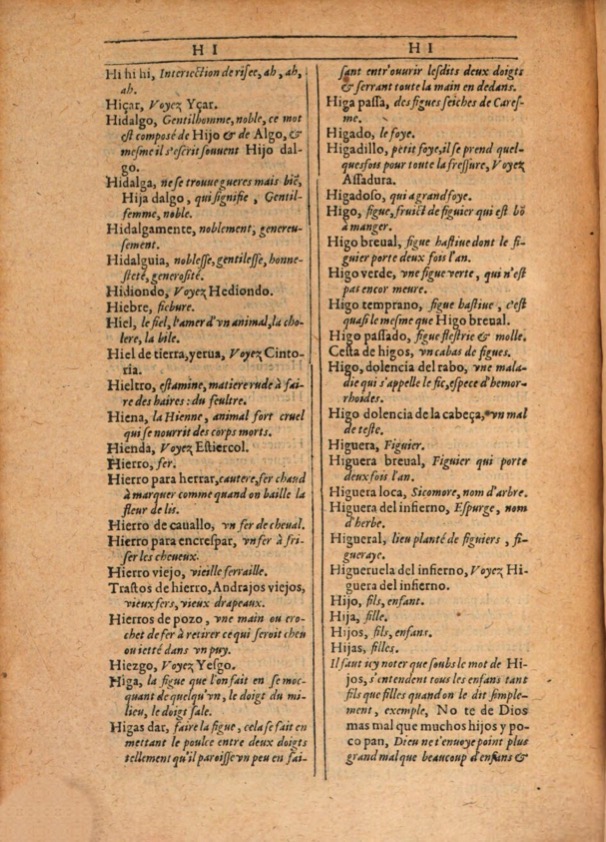 HI
Hi hi hi, Interiection de risee, ah, ah,
ah.
Hiçar, Voyez Yçar.
Hidalgo, Gentilhomme, noble, ce mot
est composé de Hijo & de Algo, &
mesme il s'escrit souuent Hijo dal-
go.
Hidalga, ne se trouue gueres mais biē,
Hija dalgo, qui signifie, Gentil-
femme, noble.
Hidalgamente, noblement, genereu-
sement.
Hidalguia, noblesse, gentilesse, honne-
steté, generosité.
Hidiondo, Voyez Hediondo.
Hiebre, fiebure.
Hiel, le fiel, l'amer d'vn animal, la cho-
lere, la bile.
Hiel de tierra, yerua, Voyez Cinto-
ria.
Hieltro, estamine, matiere rude à fai-
re des haires: du feultre.
Hiena, la Hienne, animal fort cruel
qui se nourrit des corps morts.
Hienda, Voyez Estiercol.
Hierro, fer.
Hierro para herrar, cautere, fer chaud
à marquer comme quand on baille la
fleur de lis.
Hierro de cauallo, vn fer de cheual.
Hierro para encrespar, vn fer à fri-
ser les cheueux.
Hierro viejo, vieille ferraille.
Trastos de hierro, Andrajos viejos,
vieux fers, vieux drapeaux.
Hierros de pozo, vne main ou cro-
chet de fer à retirer ce qui seroit cheu
ou ietté dans vn puy.
Hiezgo, Voyez Yesgo.
Higa, la figue que l'on fait en se moc-
quant de quelqu'vn, le doigt du mi-
lieu, le doigt sale.
Higas dar, faire la figue, cela se fait en
mettant le poulce entre deux doigts
tellement qu'il paroisse vn peu en fai-
HI
sant entr'ouurir lesdits deux doigts
& serrant toute la main en dedans.
Higa passa, des figues seiches de Cares-
me.
Higado, le foye.
Higadillo, petit foye, il se prend quel-
quesfois pour toute la fressure, Voyez
Assadura.
Higadoso, qui a grand foye.
Higo, figue, fruict de figuier qui est bō
à manger.
Higo breual, figue hastiue dont le fi-
guier porte deux fois l'an.
Higo verde, vne figue verte, qui n'est
pas encor meure.
Higo temprano, figue hastiue, c'est
quasi le mesme que Higo breual.
Higo passado, figue flestrie & molle.
Cesta de higos, vn cabas de figues.
Higo, dolencia del rabo, vne mala-
die qui s'appelle le fic, espece d'hemor-
rhoides.
Higo dolencia de la cabeça, vn mal
de teste.
Higuera, Figuier.
Higuera breual, Figuier qui porte
deux fois l'an.
Higuera loca, Sicomore, nom d'arbre.
Higuera del infierno, Espurge, nom
d'herbe.
Higueral, lieu planté de figuiers, fi-
gueraye.
Higueruela del infierno, Voyez Hi-
guera del infierno.
Hijo, fils, enfant.
Hija, fille.
Hijos, fils, enfans.
Hijas, filles.
Il faut icy noter que soubs le mot de Hi-
jos, s'entendent tous les enfans tant
fils que filles quand on le dit simple-
ment, exemple, No te de Dios
mas mal que muchos hijos y po-
co pan, Dieu ne t'enuoye point plus
grand mal que beaucoup d'enfans &